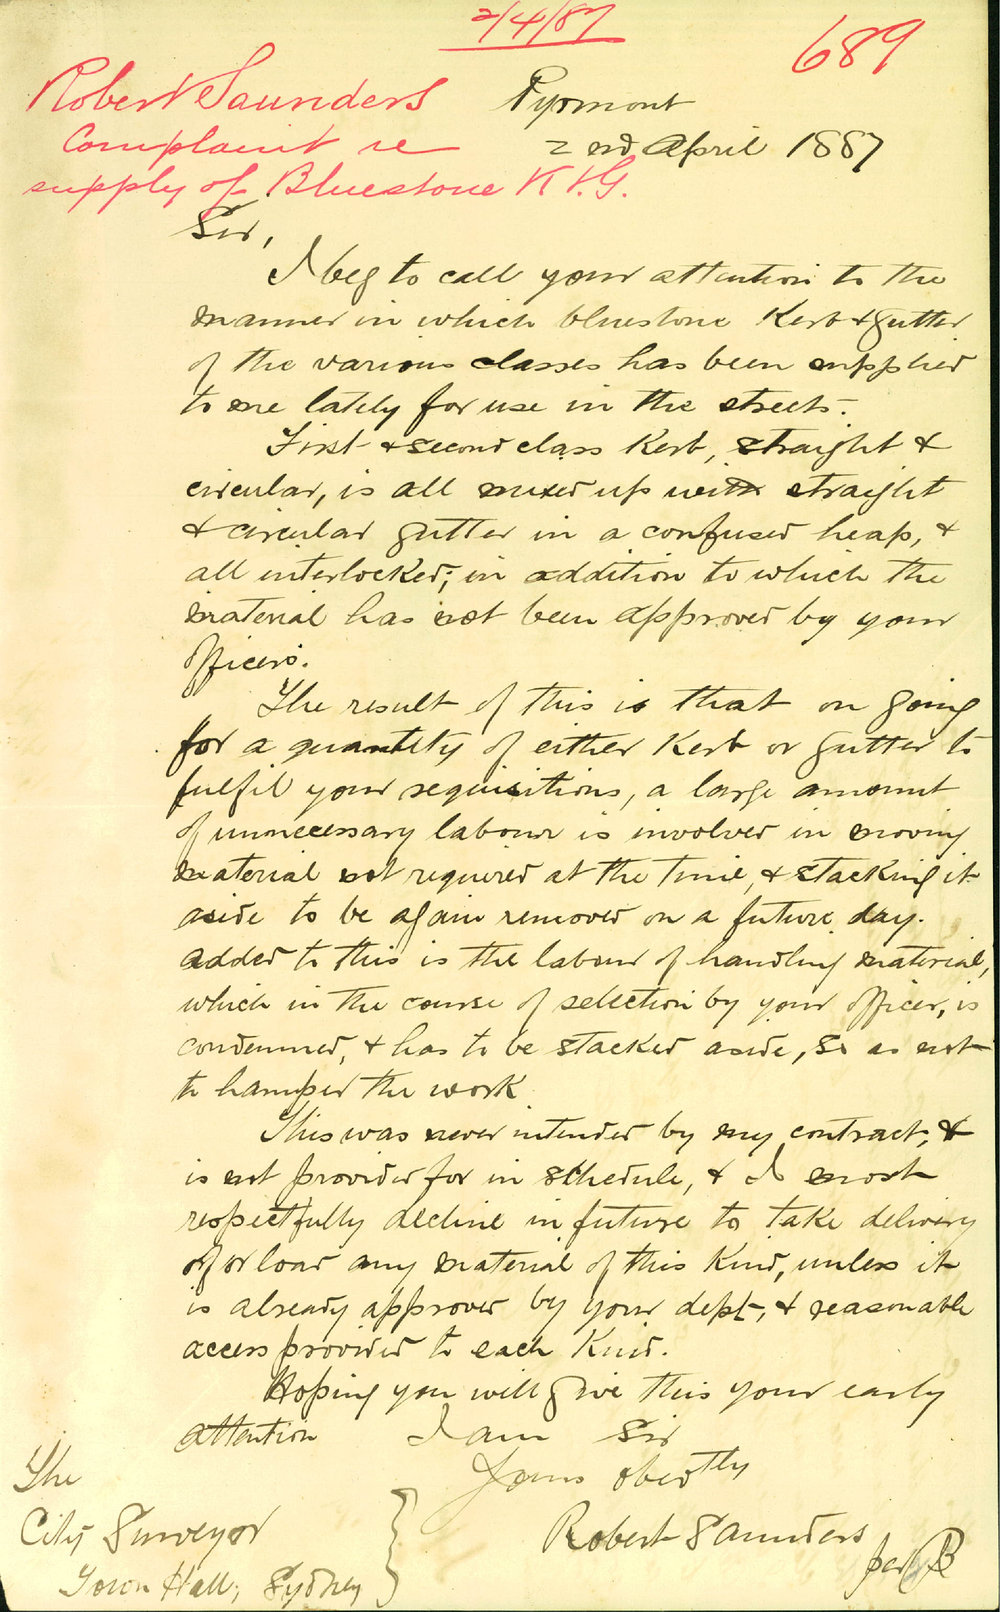 2/4/87
689
Robert Saunders
Complaint re
supply of Bluestone K & G.
Pyrmont
2nd April 1887
Sir,
I beg to call your attention to the
manner in which bluestone Kerb & gutter
of the various classes has been supplied
to me lately for use in the streets.
First & second class Kerb, straight &
circular, is all mixed up with straight
& circular gutter in a confused heap, &
all interlocked; in addition to which the
material has not been approved by your
officers.
The result of this is that on going
for a quantity of either Kerb or gutter to
fulfil your requisitions, a large amount
of unnecessary labour is involved in moving
material not required at the time, & stacking it
aside to be again removed on a future day.
added to this is the labour of handling material,
which in the course of selection by your officer, is
condemned, & has to be stacked aside, so as not
to hamper the work
This was never intended by my contract, &
is not provided for in schedule, & I most
respectfully decline in future to take delivery
of or load any material of this Kind, unless it
is already approved by your dept, & reasonable
access provided to each Kind.
Hoping you will give this your early
attention I am Sir
Yours obedtly
Robert Saunders
per
The
City Surveyor
Town Hall, Sydney